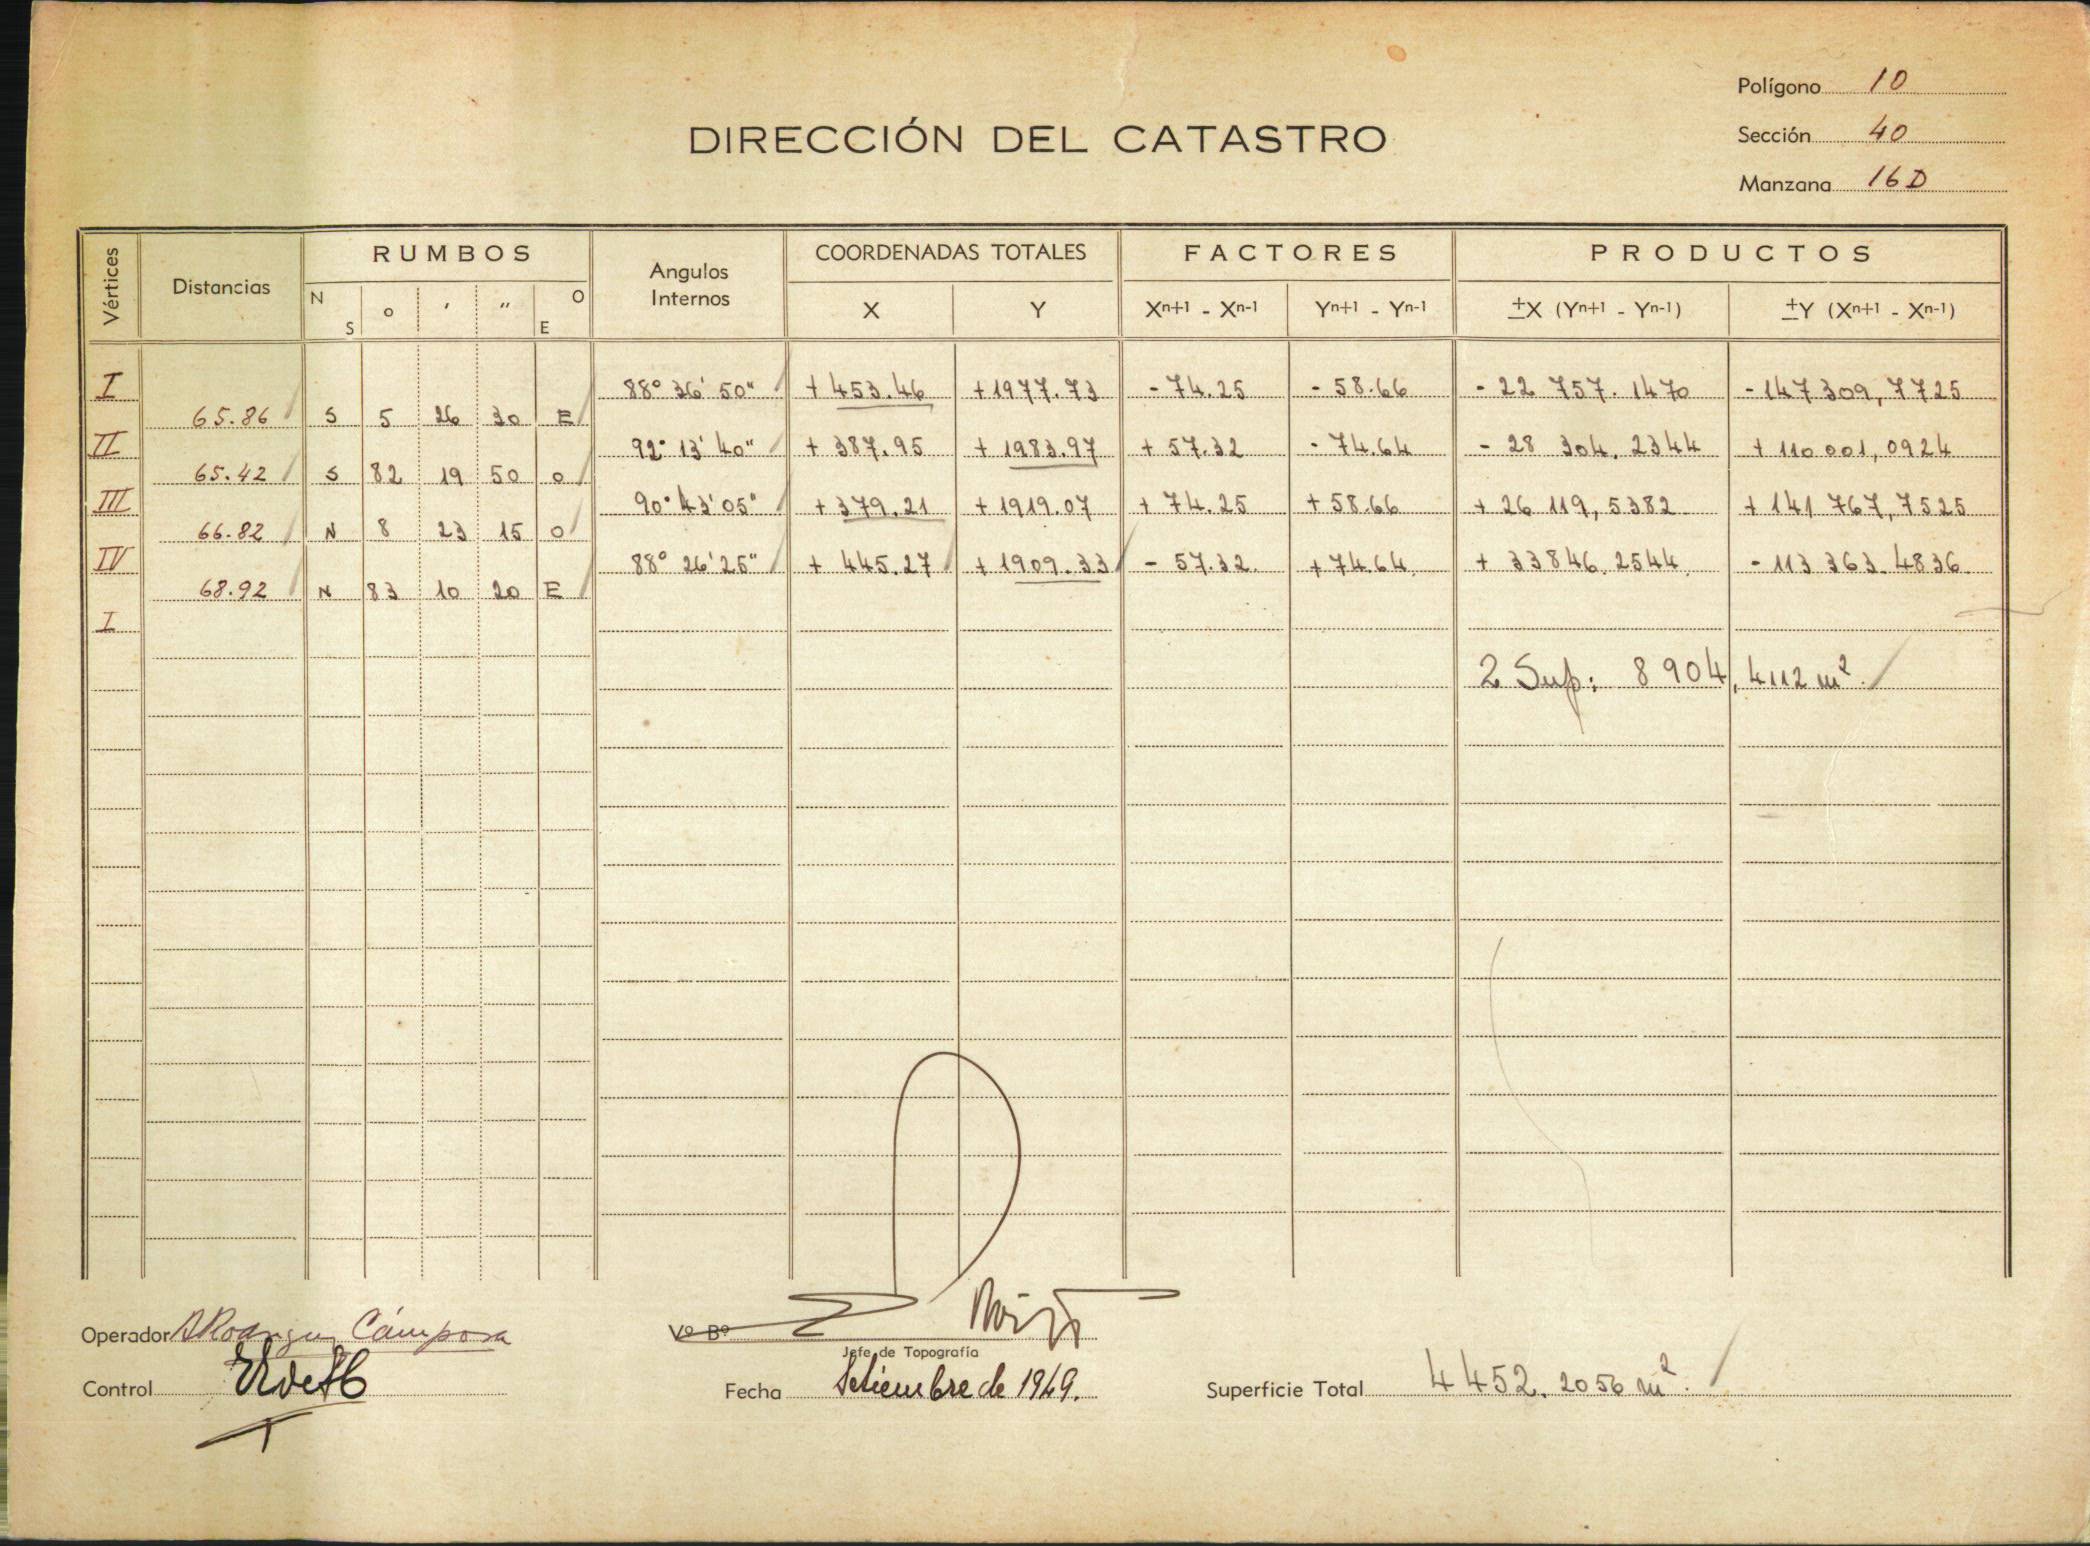 Polígono 10
DIRECCIÓN DEL CATASTRO
Sección 40
Manzana 16D
Vértices Distancias RUMBOS Angulos Internos COORDENADAS TOTALES FACTORES PRODUCTOS
N S ° ' " O E X Y Xn+1 - Xn-1 Yn+1 - Yn-1 ±X (Yn+1 - Yn-1) ±Y (Xn+1 - Xn-1)
I 88° 36' 50" + 453.46 +1977.73 - 74.25 - 58.66 - 22 757. 1470 -147 309, 7725
65.86 S 5 26 30 E
II 92° 13' 40" + 387.95 + 1983.97 + 57.32 - 74.64 - 28 304. 2344 + 110 001, 0924
65.42 S 82 19 50 O
III 90° 43' 05" + 379.21 + 1919.07 + 74.25 + 58.66 + 26 119, 5382 + 141 767, 7525
66.82 N 8 23 15 O
IV 88° 26' 25" + 445.27 + 1909.33 - 57.32 + 74.64 + 33846. 2544 - 113 363. 4836
68.92 N 83 10 20 E
I
2 Sup: 8 904, 4112 m²
Operador Cámpora
Vº Bº
Jefe de Topografía
Control
Fecha Setiembre de 1949.
Superficie Total 4452. 2056 m².